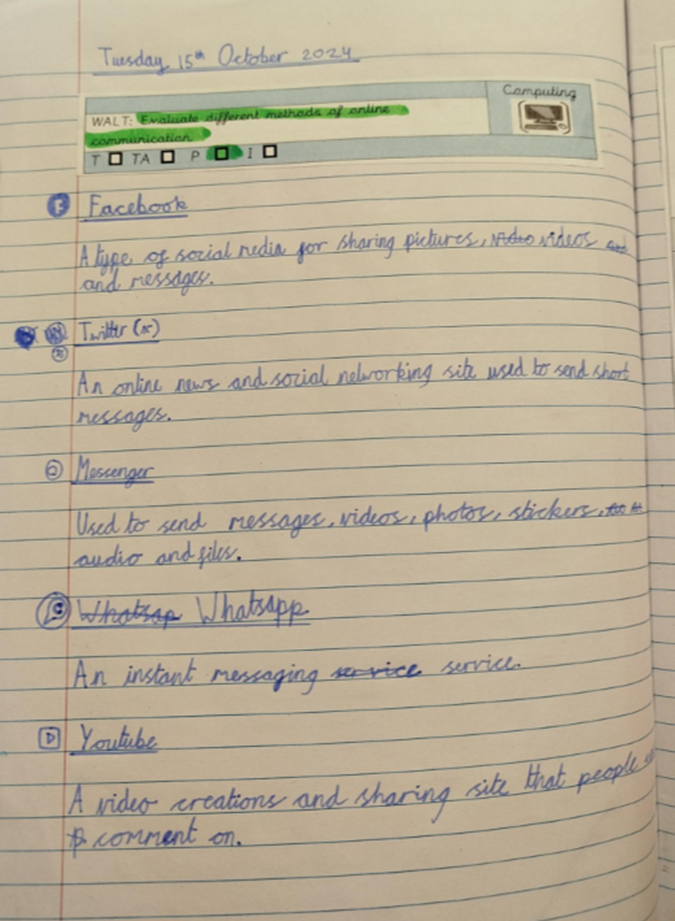 Tuesday 15th October 2024
Computing
WALT: Evaluate different methods of online
communication.
T TA P I
Facebook
A type of social media for sharing pictures, video videos and
and messages.
Twitter (x)
An online news and social networking site used to send short
messages.
Messenger
Used to send messages, videos, photos, stickers,
audio and files.
Whatsap Whatsapp
An instant messaging service service.
Youtube
A video creations and sharing site that people
comment on.